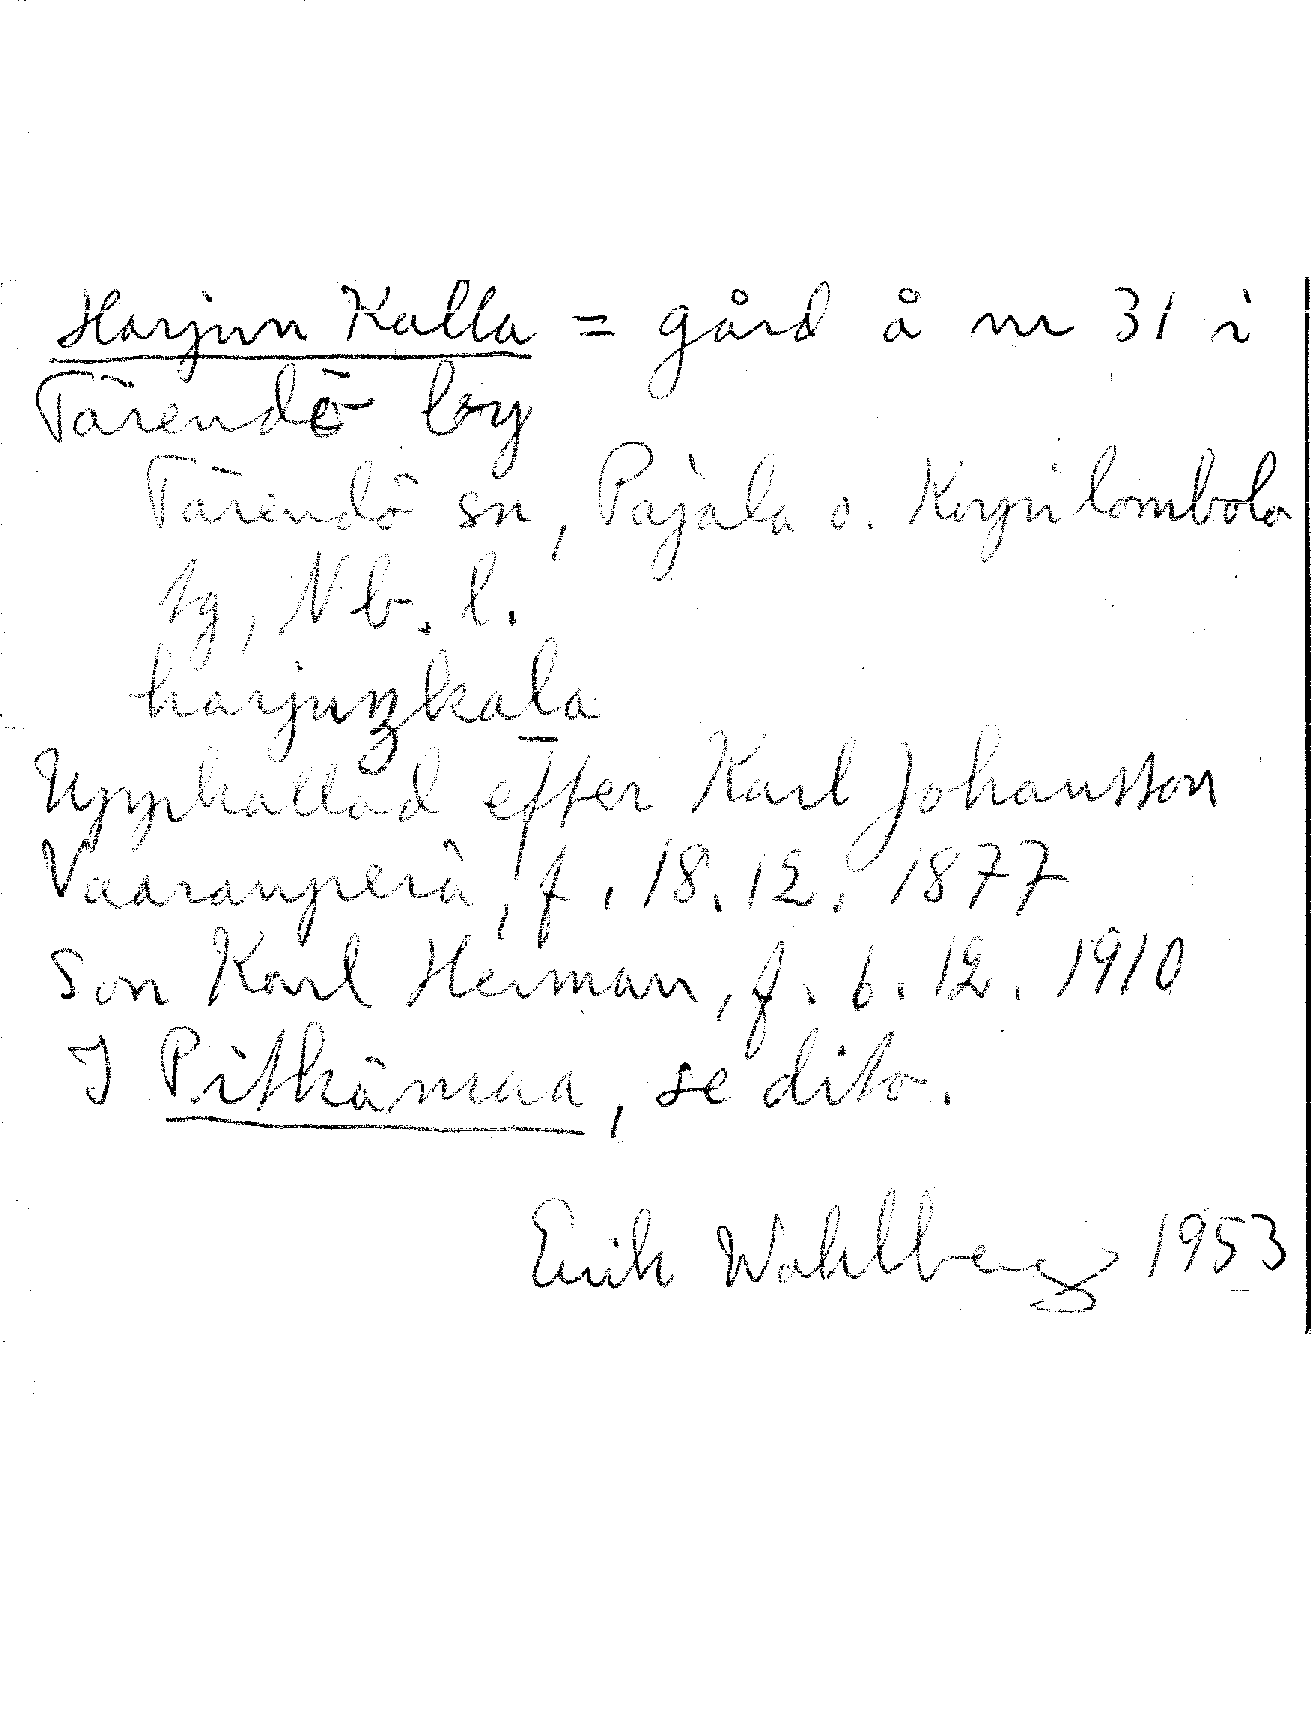 Harjun Kalla = gård å nr 31 i
Tärendö by
Tärendö sn, Pajala o. Korpilombolo
tg, Nb. l.
harjuŋkala
Uppkallad efter Karl Johansson
Vaaranperä, f. 18.12. 1877
Son Karl Herman, f. 6.12. 1910
I Pitkämaa, se dito.
Erik Wahlberg 1953